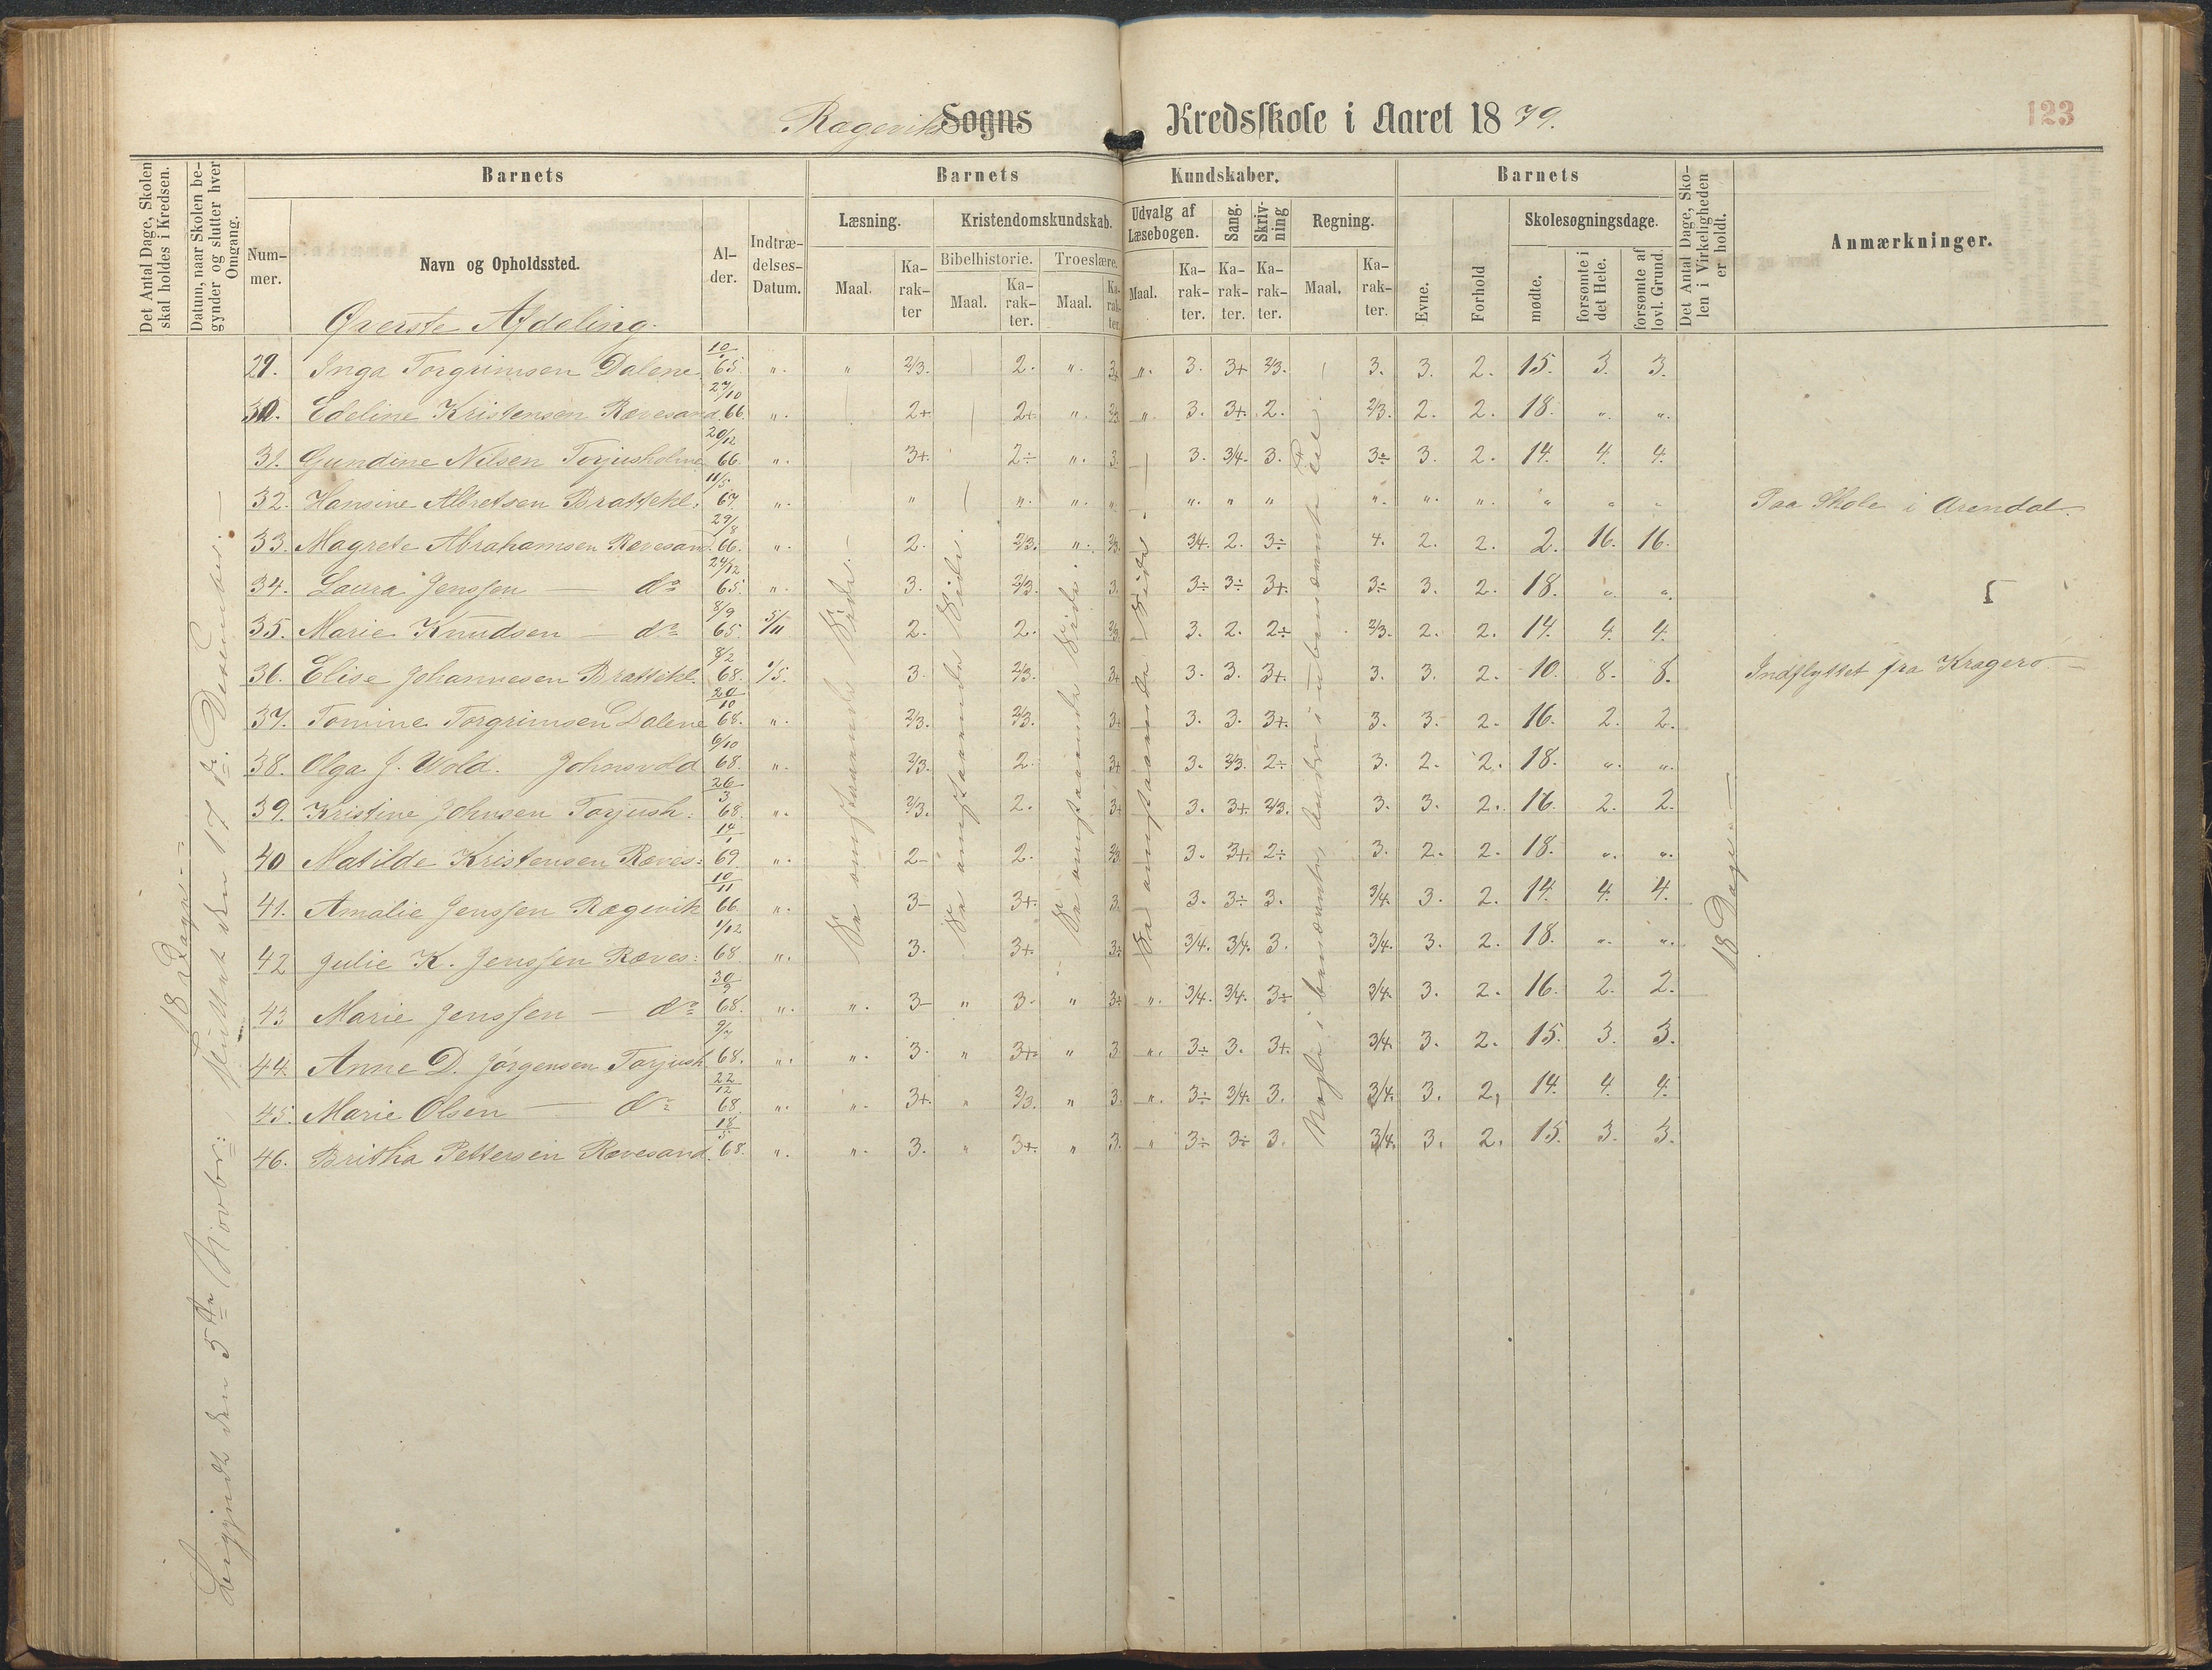 Ragevik Sogns Kredsskole i Aaret 1879.
123
Det Antal Dage, Skolen skal holdes i Kredsen.
Datum, naar Skolen begynder og slutter hver Omgang.
Barnets
Barnets Kundskaber.
Barnets
Det Antal Dage, Skolen i Virkeligheden er holdt.
Anmærkninger.
Nummer.
Navn og Opholdssted.
Alder.
Indtrædelses-Datum.
Læsning.
Kristendomskundskab.
Udvalg af Læsebogen.
Sang.
Skrivning
Regning.
Evne.
Forhold
Skolesøgningsdage.
Bibelhistorie.
Troeslære.
Maal.
Karakter
Maal.
Karakter.
Maal.
Karakter.
Maal.
Karakter.
Karakter.
Karakter.
Maal.
Karakter.
mødte.
forsømte i det Hele.
forsømte af lovl. Grund.
Øverste Afdeling.
29. Inga Torgrimsen Dalene 10/1 65. " " 2/3. 2. " 3+ " 3. 3+ 2/3. 3. 3. 2. 15. 3. 3.
30. Edeline Kristensen Rævesand 27/10 66. " 2+ 2+ " 2/3 " 3. 3+ 2. 2/3. 2. 2. 18. " "
31. Gundine Nilsen Torjusholme 20/12 66. " 3+. 2÷ " 3. 3. 3/4. 3. 3÷ 3. 2. 14. 4. 4.
32. Hansine Albretsen Brattekl. 11/5 67. " " " " " " " " " " " " " " Paa Skole i Arendal.
33. Magrete Abrahamsen Revesand. 29/8 66. " 2. 2/3. " 2/3. 3/4. 2. 3÷ 4. 2. 2. 2. 16. 16.
34. Laura Jenssen — do 24/12 65. " 3. 2/3. 3. 3÷ 3÷ 3+. 3÷ 3. 2. 18. " "
35. Marie Knudsen — do 8/9 65. 5/11 2. 2. 2/3 3. 2. 2÷ 2/3. 2. 2. 14. 4. 4.
36. Elise Johannesen Brattekl. 8/2 68. 1/5. 3. 2/3. 3+ 3. 3. 3+. 3. 3. 2. 10. 8. 8. Indflyttet fra Kragerø —
37. Tomine Torgrimsen Dalene 20/10 68. " 2/3. 2/3. 3+ 3. 3. 3+. 3. 3. 2. 16. 2. 2.
38. Olga J. Wold. Johnsvold 6/10 68. " 2/3. 2. 3+ 3. 2/3. 2÷ 3. 2. 2. 18. " "
39. Kristine Johnsen Torjush: 26/3 68. " 2/3. 2. 3+ 3. 3+ 2/3. 3. 3. 2. 16. 2. 2.
40 Matilde Kristensen Ræves: 14/1 69 " 2- 2. 2/3 3. 3+. 2÷ 3. 2. 2. 18. " "
41. Amalie Jenssen Ragevik 10/11 66. " 3- 3+. 3. 3. 3÷ 3. 3/4. 3. 2. 14. 4. 4.
42 Julie K. Jenssen Ræves: 1/12 68 " 3. 3+. 3÷ 3/4. 3/4. 3. 3/4. 3. 2. 18. " "
43 Marie Jenssen — do 30/9 68. " " 3- " 3. " 3÷ " 3/4. 3/4. 3÷ 3/4. 3. 2. 16. 2. 2.
44. Anne D. Jørgensen Torjush 9/7 68. " " 3. " 3+. " 3. " 3÷ 3. 3+. 3/4. 3. 2. 15. 3. 3.
45. Marie Olsen — do 22/12 68. " " 3+. " 2/3. " 3. " 3÷ 3/4. 3. 3/4. 3. 2, 14. 4. 4.
46. Britha Pettersen Rævesand. 18/5 68. " " 3. " 3+. " 3. " 3÷ 3÷ 3. 3/4. 3. 2. 15. 3. 3.
18 Dage. —
Begyndt den 5te Novbr:, sluttet den 17 do December. —
Se omstaaende Side. —
Se omstaaende Side.
Se omstaaende Side.
Se omstaaende Side.
Nogle i benævnte, Andre i ubenævnte Tal.
18 Dage. —